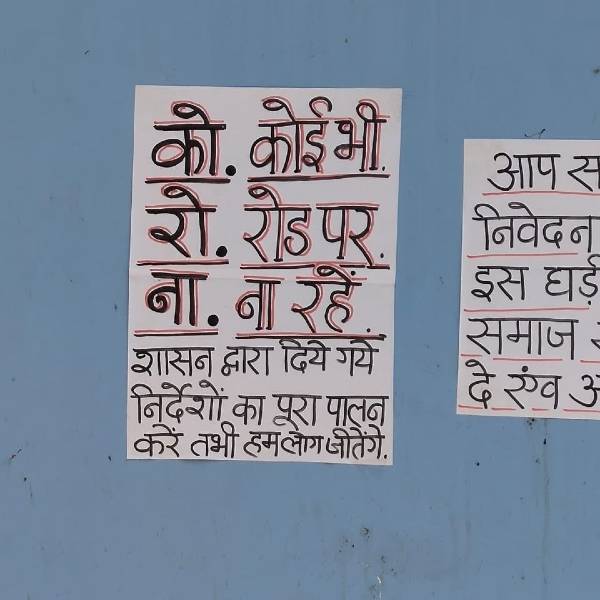 को. कोई भी.
रो. रोड पर.
ना. ना रहें.
शासन द्वारा दिये गये
निर्देशों का पूरा पालन
करें तभी हम लोग जीतेंगे.
आप
निवेदन
इस
समाज
दे एंव